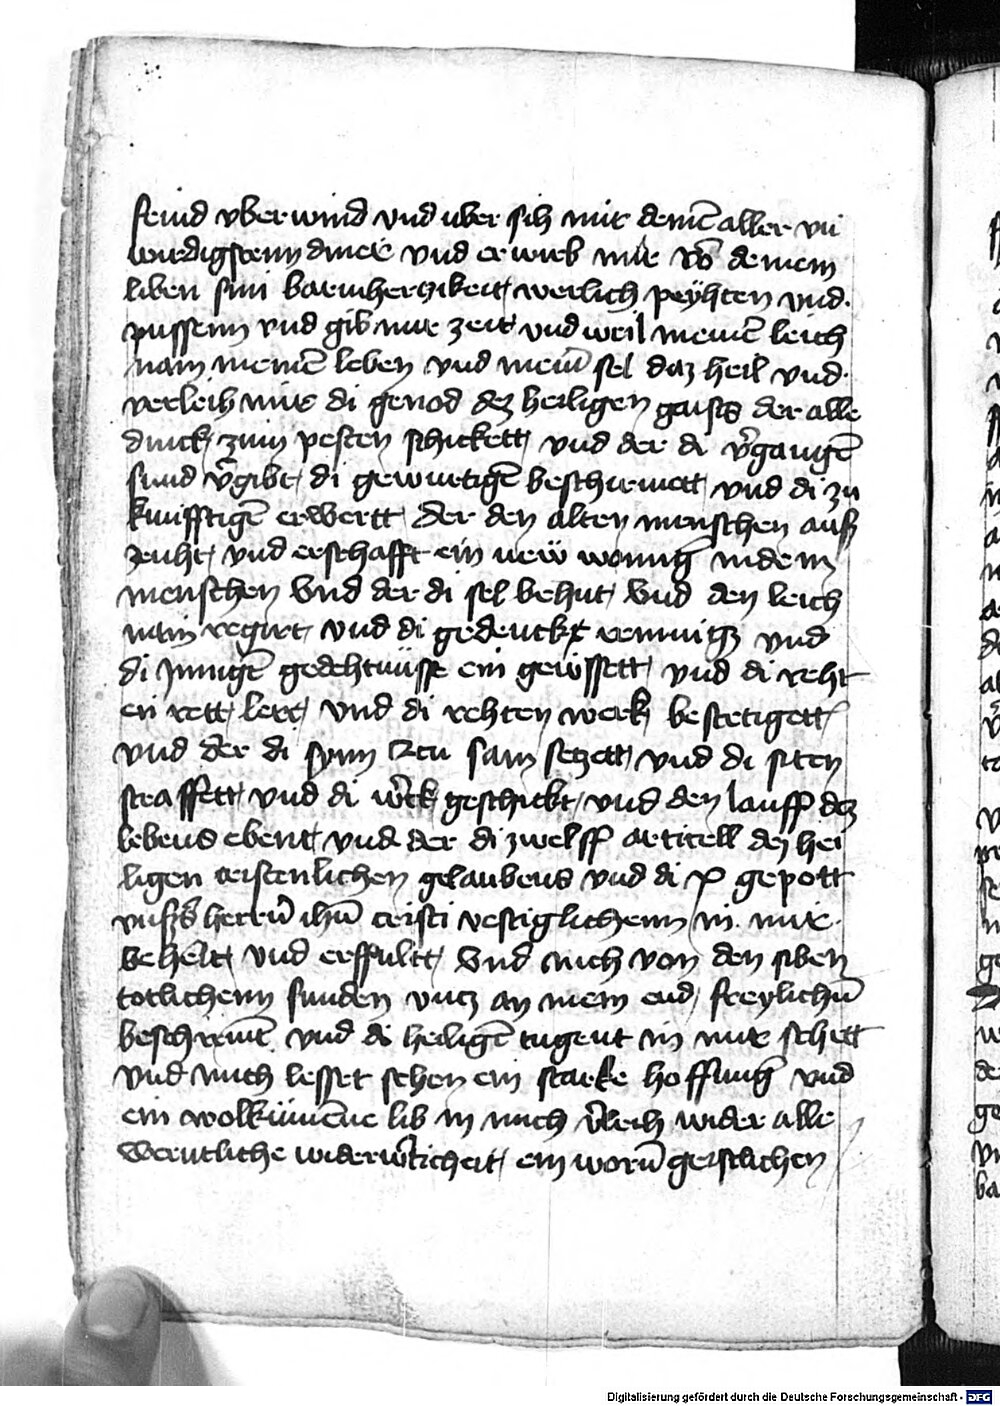 feind vber wind vnd uber sih mit deinē aller vn
wirdigstenn dinär vnd er wirb mir vō deinem
liben sun barmherczikeit werlich peyhten vnd
pussenn vnd gib mir zeit vnd weil meinē leich
nam meinē leben vnd meinr̄ sel daz heil vnd
verleih mir di genod dez heiligen gaists der alle
dinck zum pesten schickett vnd der di v̄gangē
sund v̄gibt di gewurtigē beschirmett vnd di zu
kunfftigē erwertt der den alten menschen auß
zeuht vnd erschafft ein new wonung in dem
menschen Vnd der di sel behut Vnd den leich
nam regirt vnd di gedenck reinnigt vnd
di Jnnigē gedehtnüsse ein geussett vnd di reht
ein rett lert vnd di rehten werck bestetigett
vnd der di synn zu sam seczett vnd di siten
straffett vnd di w̄ck geschickt vnd den lauff dez
lebens ebent vnd der di zwelff artickell dez hei
ligen cristenlichen gelaubens vnd di x gepott
vnß̄s herrn̄ ihū cristi vestiglichenn in mir
behelt vnd erffullt Vnd mich von den siben
totlichenn sunden vncz an mein end freylichn̄
beschirmt vnd di heiligē tugent in mir schett
vnd mich lesset sehen ein starke hoffnung vnd
ein wolkümene lib in mich v̄leih wider alle
Werntliche widerw̄ticheit ein worn̄ geistlichen
Digitalisierung gefördert durch die Deutsche Forschungsgemeinschaft - DFG